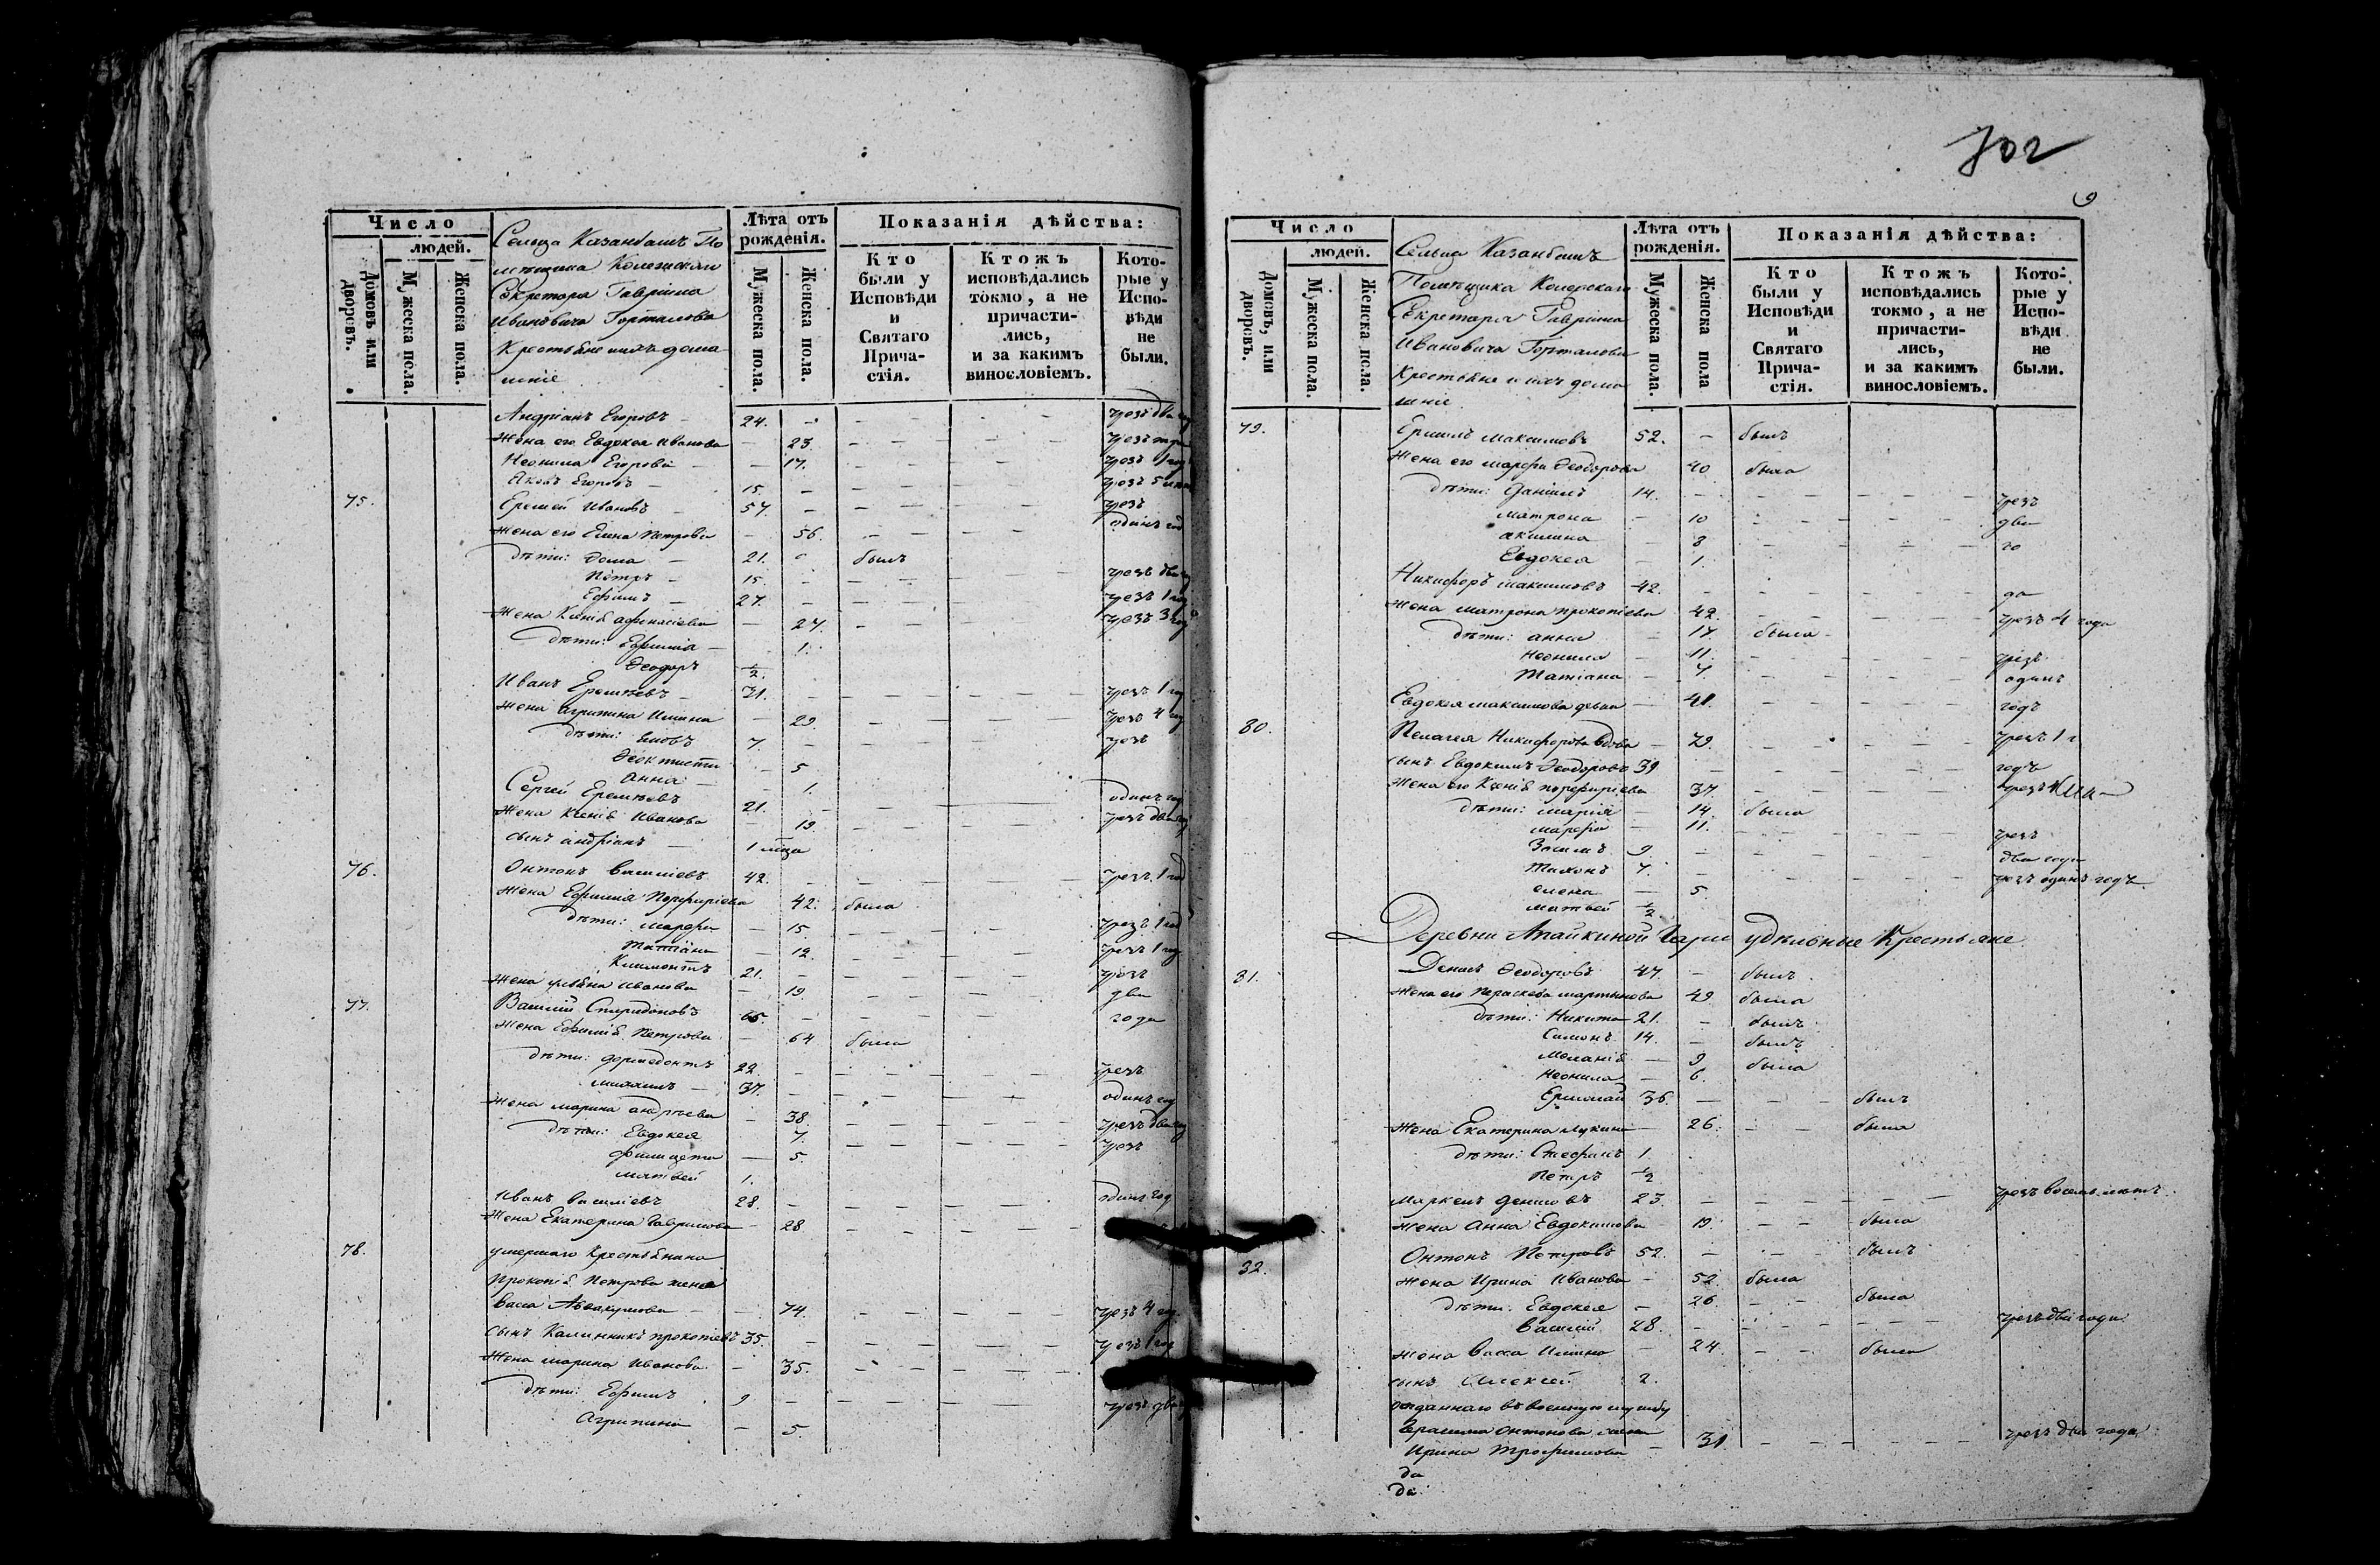 702
9
Число
людей.
Домовъ или дворовъ.
Мужеска пола.
Женска пола.
Сельца Казанбашъ По
мѣщика
Секретаря Гавріила
Ивановича Горталова
Крестьяне и ихъ дома
шніе
Лѣта отъ рожденія.
Мужеска пола.
Женска пола.
Показанія дѣйства:
Кто были у Исповѣди и Святаго Прича- стія.
Ктожъ исповѣдались токмо, а не причасти- лись, и за какимъ винословіемъ.
Кото- рые у Испо- вѣди не были.
Андріанъ Егоровъ 24. чрезъ два
Жена его Евдокея Иванова 23. чрезъ
Неонила Егорова 17. чрезъ 1 год
Яковъ Егоровъ 15 чрезъ 5
75. Еремей Ивановъ 57. чрезъ
Жена его Елена Петрова 56. одинъ год
дѣти: Фома 21. былъ
Петръ 15. чрезъ два
Ефимъ 27. чрезъ 1 год
Жена Ксенія Афанасіева 27. чрезъ 3 год
дѣти: Ефимія 1.
Ѳеодоръ 1/2.
Иванъ Еремѣевъ 31. чрезъ 1 год
Жена Агрипина Ильина 29 чрезъ 4 год
дѣти: 7. чрезъ
Ѳеоктиста 5
Анна 1.
Сергей Еремѣевъ 21. одинъ год
Жена Ксенія Иванова 19 чрезъ два
сынъ Андріанъ 1 мца
76. Онтонъ Василіевъ 42. чрезъ 1 год
Жена Ефимія Порфиріева 42. была
дѣти: Марфа 15 чрезъ 1 год
Татіана 12. чрезъ 1 год
Климонтъ 21. чрезъ
Жена Ульяна Иванова 19. два
77. Василій Спиридоновъ 65. года
Жена Ефимія Петрова 64 была
дѣти: Дормедонтъ 22. чрезъ
Михаилъ 37. одинъ год
Жена Марина Андрѣева 38. чрезъ два
дѣти: Евдокея 7. чрезъ
Филицата 5.
Матвей 1.
Иванъ Василіевъ 28. одинъ год
Жена Екатерина Гаврилова 28
78. умершаго Крестьянина
Прокопія Петрова жена
Васса Аввакумова 74. чрезъ 4 год
сынъ Калинникъ Прокопіевъ 35. чрезъ 1 год
Жена Марина Иванова 35.
дѣти: Ефимъ 9 чрезъ два
Агрипина 5
Число
людей.
Домовъ, или дворовъ.
Мужеска пола.
Женска пола.
Сельца Казанбашъ
Помѣщика
Секретаря Гавріила
Ивановича Горталова
Крестьяне и ихъ дома
шніе
Лѣта отъ рожденія.
Мужеска пола.
Женска пола
Показанія дѣйства:
Кто были у Исповѣди и Святаго Прича- стія.
Ктожъ исповѣдались токмо, а не причасти- лись, и за какимъ винословіемъ.
Кото- рые у Испо- вѣди не были.
79. Ермилъ Максимовъ 52. былъ
Жена его Марфа Ѳеодорова 40 была
дѣти: Даніилъ 14. чрезъ
Матрона 10 два
Акилина 8 го
Евдокея 1.
Никифоръ Максимовъ 42. да
Жена Матрона Прокопіева 42. чрезъ 4 года
дѣти: Анна 17. была
Неонила 11. чрезъ
Татіана 7. одинъ
Евдокея Максимова девка 41. годъ
80. Пелагея Никифорова вдова 79. чрезъ 1 г
сынъ Евдокимъ Ѳеодоровъ 39 годъ
Жена его Ксенія Порфиріева 37. чрезъ
дѣти: Марія 14. была
Марфа 11. чрезъ
9 два года
Тихонъ 7. чрезъ одинъ годъ
Елена 5.
Матвей 1/2
Деревни Апайкиной Гари удѣльные Крестьяне
31. Денисъ Ѳеодоровъ 47. былъ
Жена его Параскева Мартынова 49 была
дѣти: Никита 21. былъ
Симонъ 14. былъ
Меланія 9 была
Неонила 6.
Ермолай 36. былъ
Жена Екатерина Лукина 26. была
дѣти: Стефанъ 1.
Петръ 1/2
Маркелъ Денисовъ 23. чрезъ восемь лѣтъ
Жена Анна Евдокимова 19. была
32. Онтонъ Петровъ 52. былъ
Жена Ирина Иванова 52. была
дѣти: Евдокея 26. была
Василій 28. чрезъ два года
Жена Васса Ильина 24. была
сынъ Алексей 2.
отданнаго въ военную службу
Герасима Онтонова жена
Ирина Трофимова 31 чрезъ два года
да
да